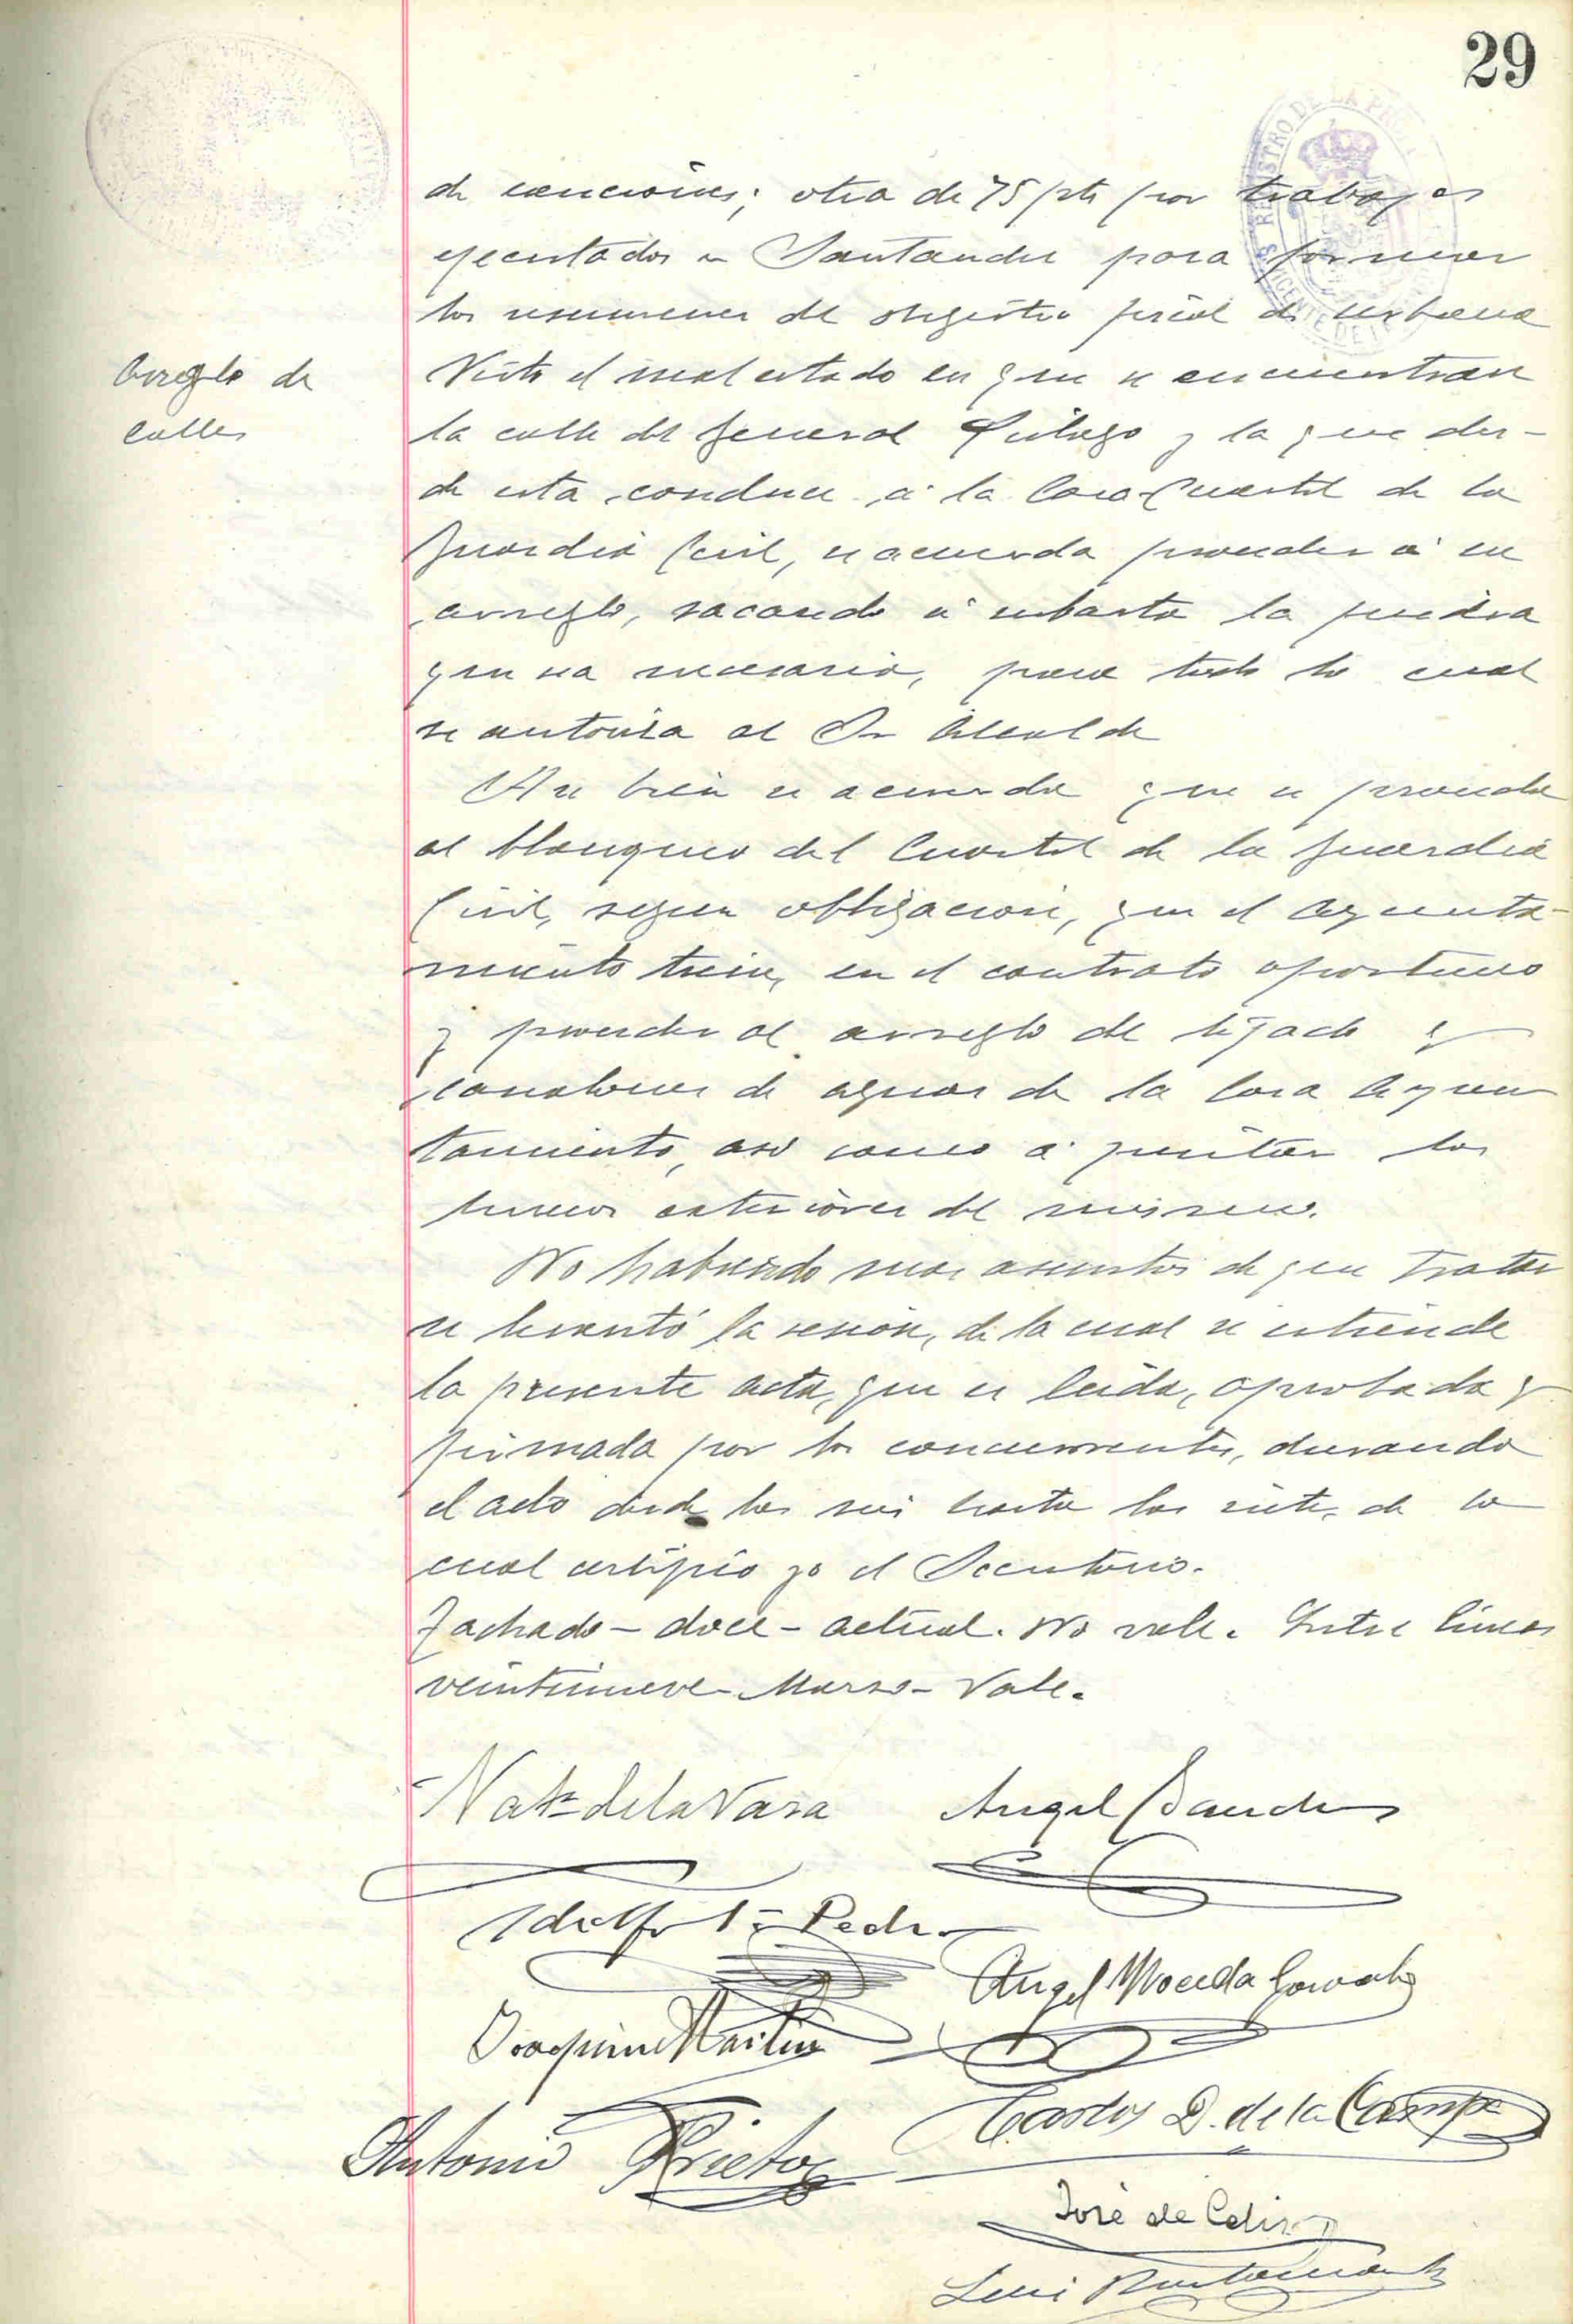 29
de exenciones; otra de 75 pts por trabajos
ejecutados en Santander para formar
los resumenes de registro fiscal de urbana
Arreglo de
calles
Visto el mal estado en que se encuentran
la calle del General y la que des-
de esta conduce á la Casa-Cuartel de la
Guardia Civil, se acuerda proceder á su
arreglo, sacando á subasta la piedra
que sea necesaria, para todo lo cual
se autoriza al Sr Alcalde
bien se acuerda que se proceda
al blanqueo del Cuartel de la Guardia
Civil, segun obligacion, que el Ayunta-
miento tiene, en el contrato oportuno
y proceder al arreglo del tejado y
canalones de aguas de la Casa Ayun
tamiento, asi como á pintar los
huecos exteriores del mismo.
No habiendo mas asuntos de que tratar
se levantó la sesión, de la cual se extiende
la presente acta, que es leida, aprobada y
firmada por los concurrentes, durando
el acto desde las seis hasta las siete, de lo
cual certifico yo el Secretario.
Tachado - doce - actual. No vale. Entre lineas
veintinueve Marzo - Vale.
de la Vara Angel Sanchez
Adolfo Pedr
Angel Poceda Gonzalez
Joaquin Martin
Carlos D. de la Campa
Antonio Prieto
José de Celis
Luis Bustamante